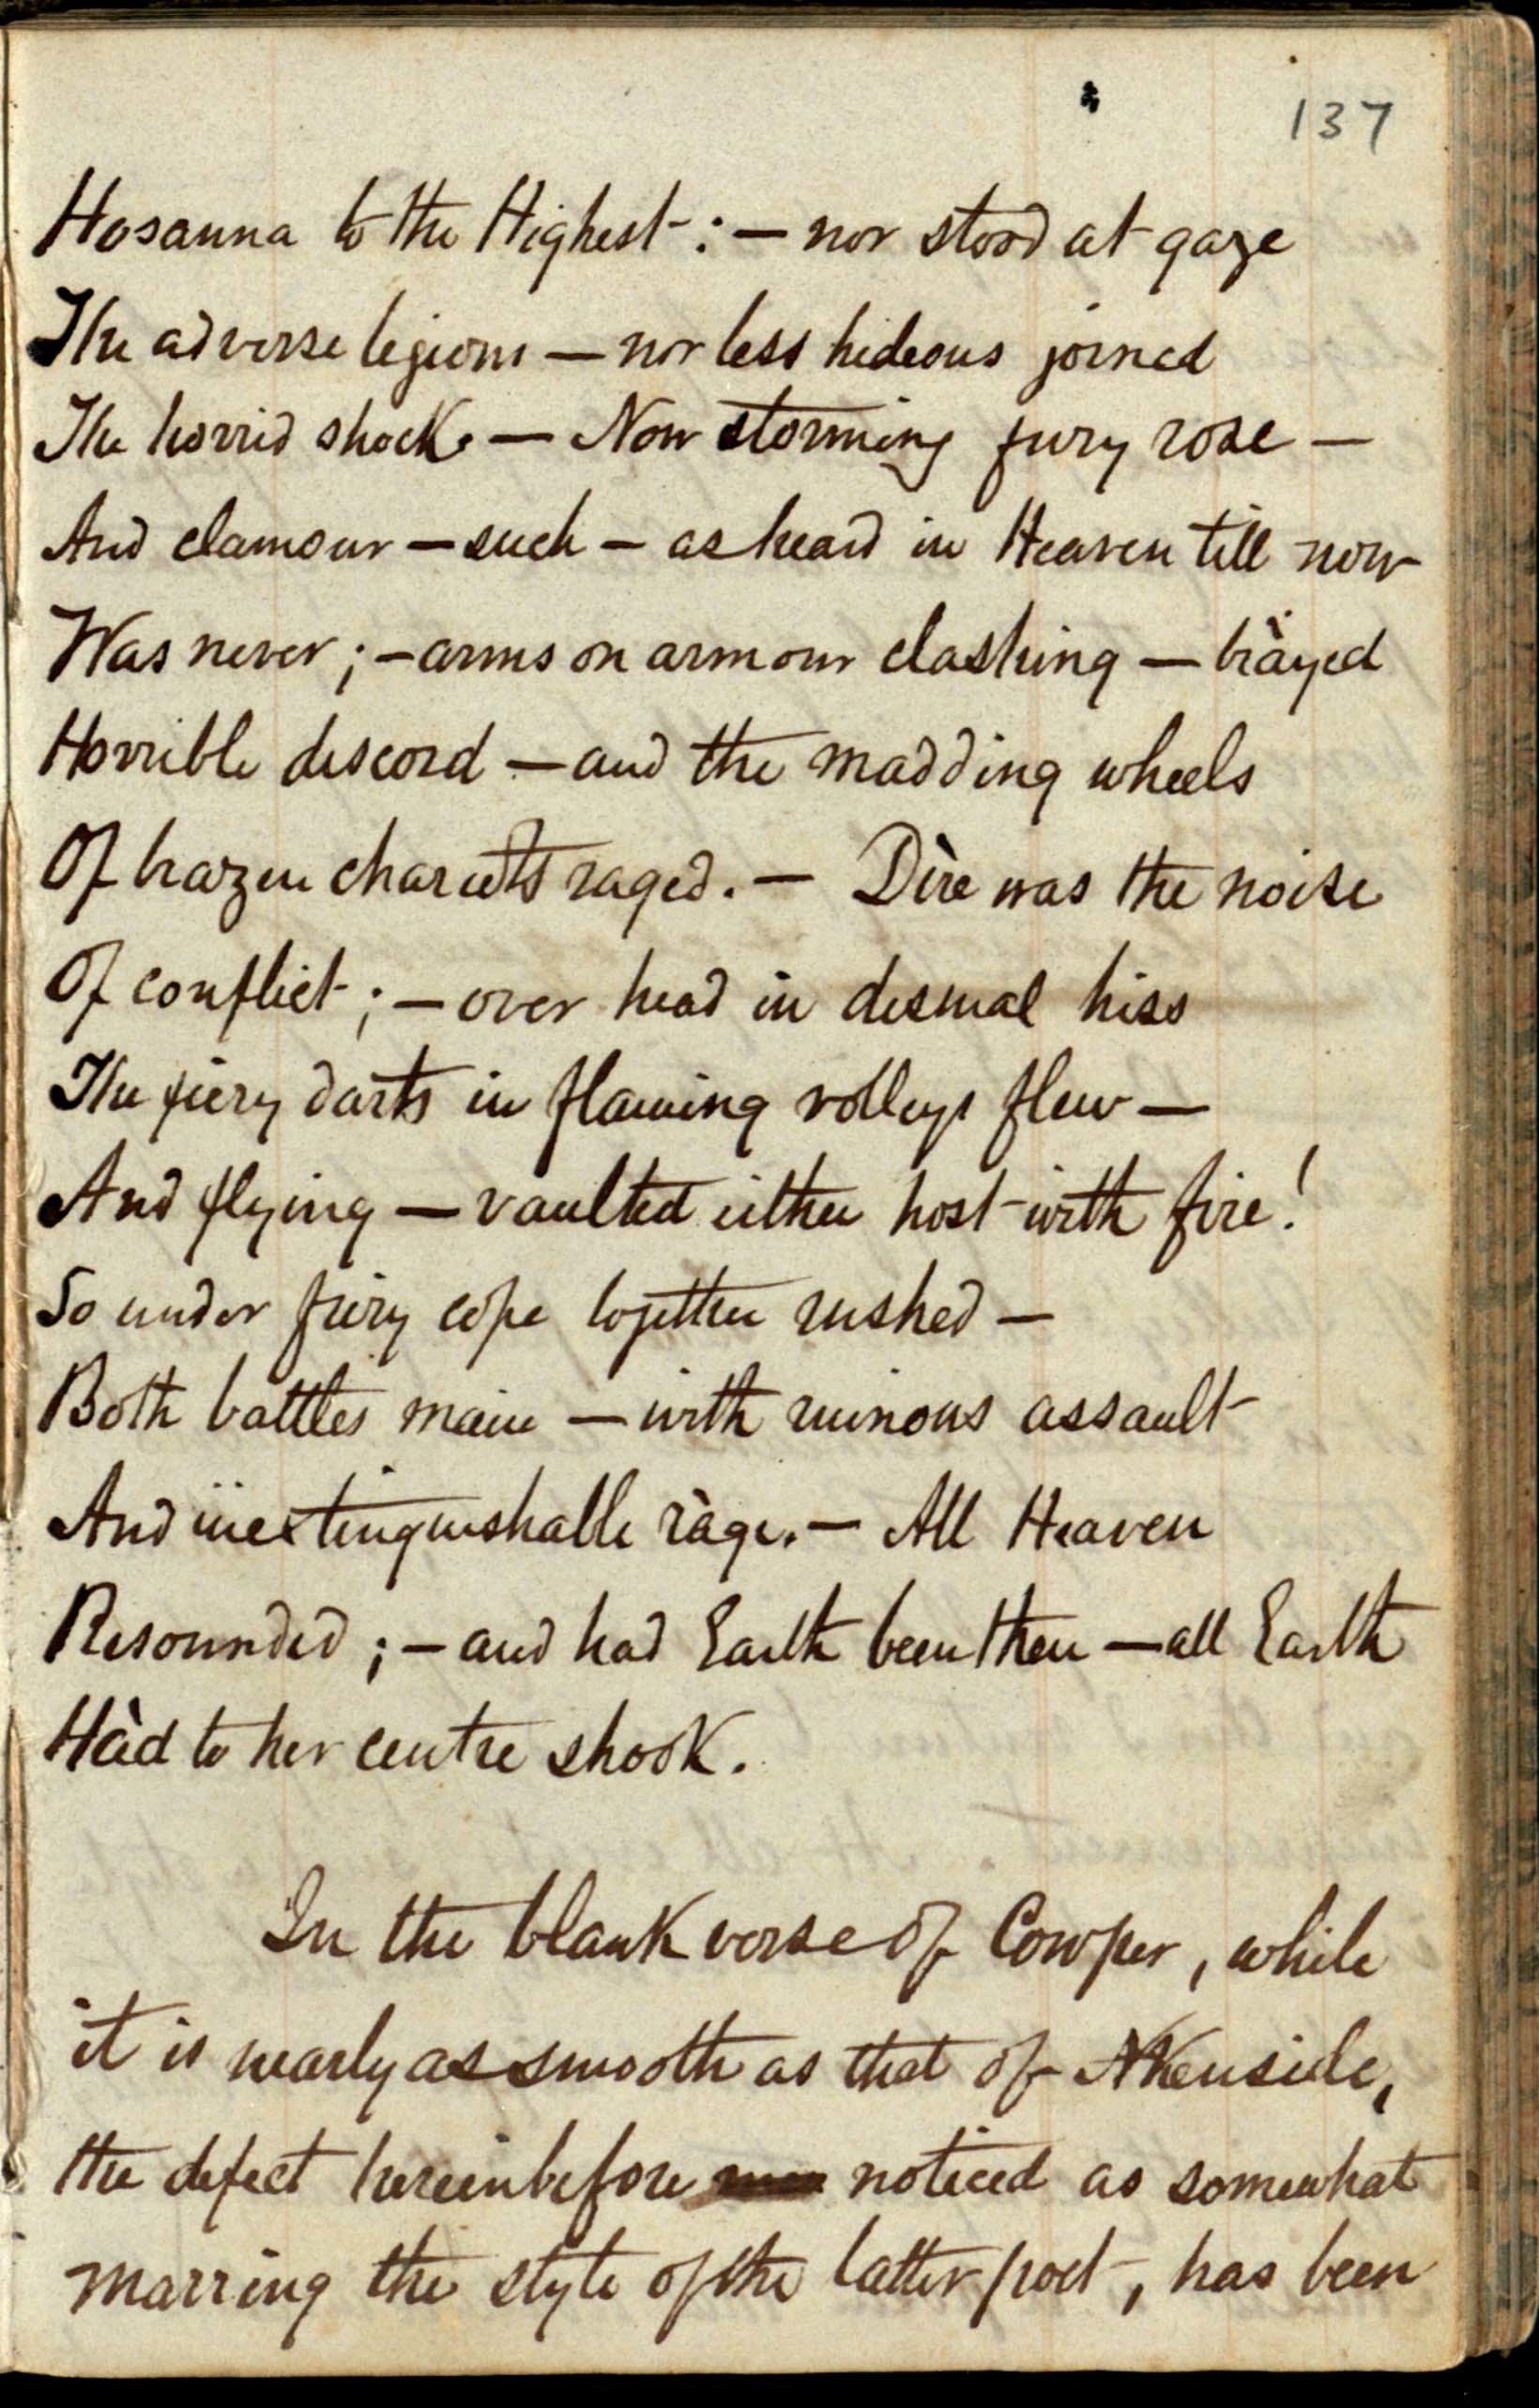 137
Hosanna to the Highest : — nor stood at gaze
The adverse legions — nor less hideous joined
The horrid shock. — Now storming fury rose —
And clamour — such — as heard in Heaven till now
Was never ; — arms on armour clashing — bràyed
Horrible discord — and the madding wheels
Of brazen chariots raged. — Dìre was the noise
Of conflict ; — over head in dismal hiss
The fiery darts in flaming volleys flew —
And flying — vaulted either host with fire!
So under fiery cope together rushed —
Both battles main — with ruinous assault
And inextinguishable ràge. — All Heaven
Resounded ; — and had Earth been then — all Earth
Hàd to her centre shook.
In the blank verse of Cowper, while
it is nearly as smooth as that of AKenside,
the defect hereinbefore noticed as somewhat
marring the style of the latter poet, has been